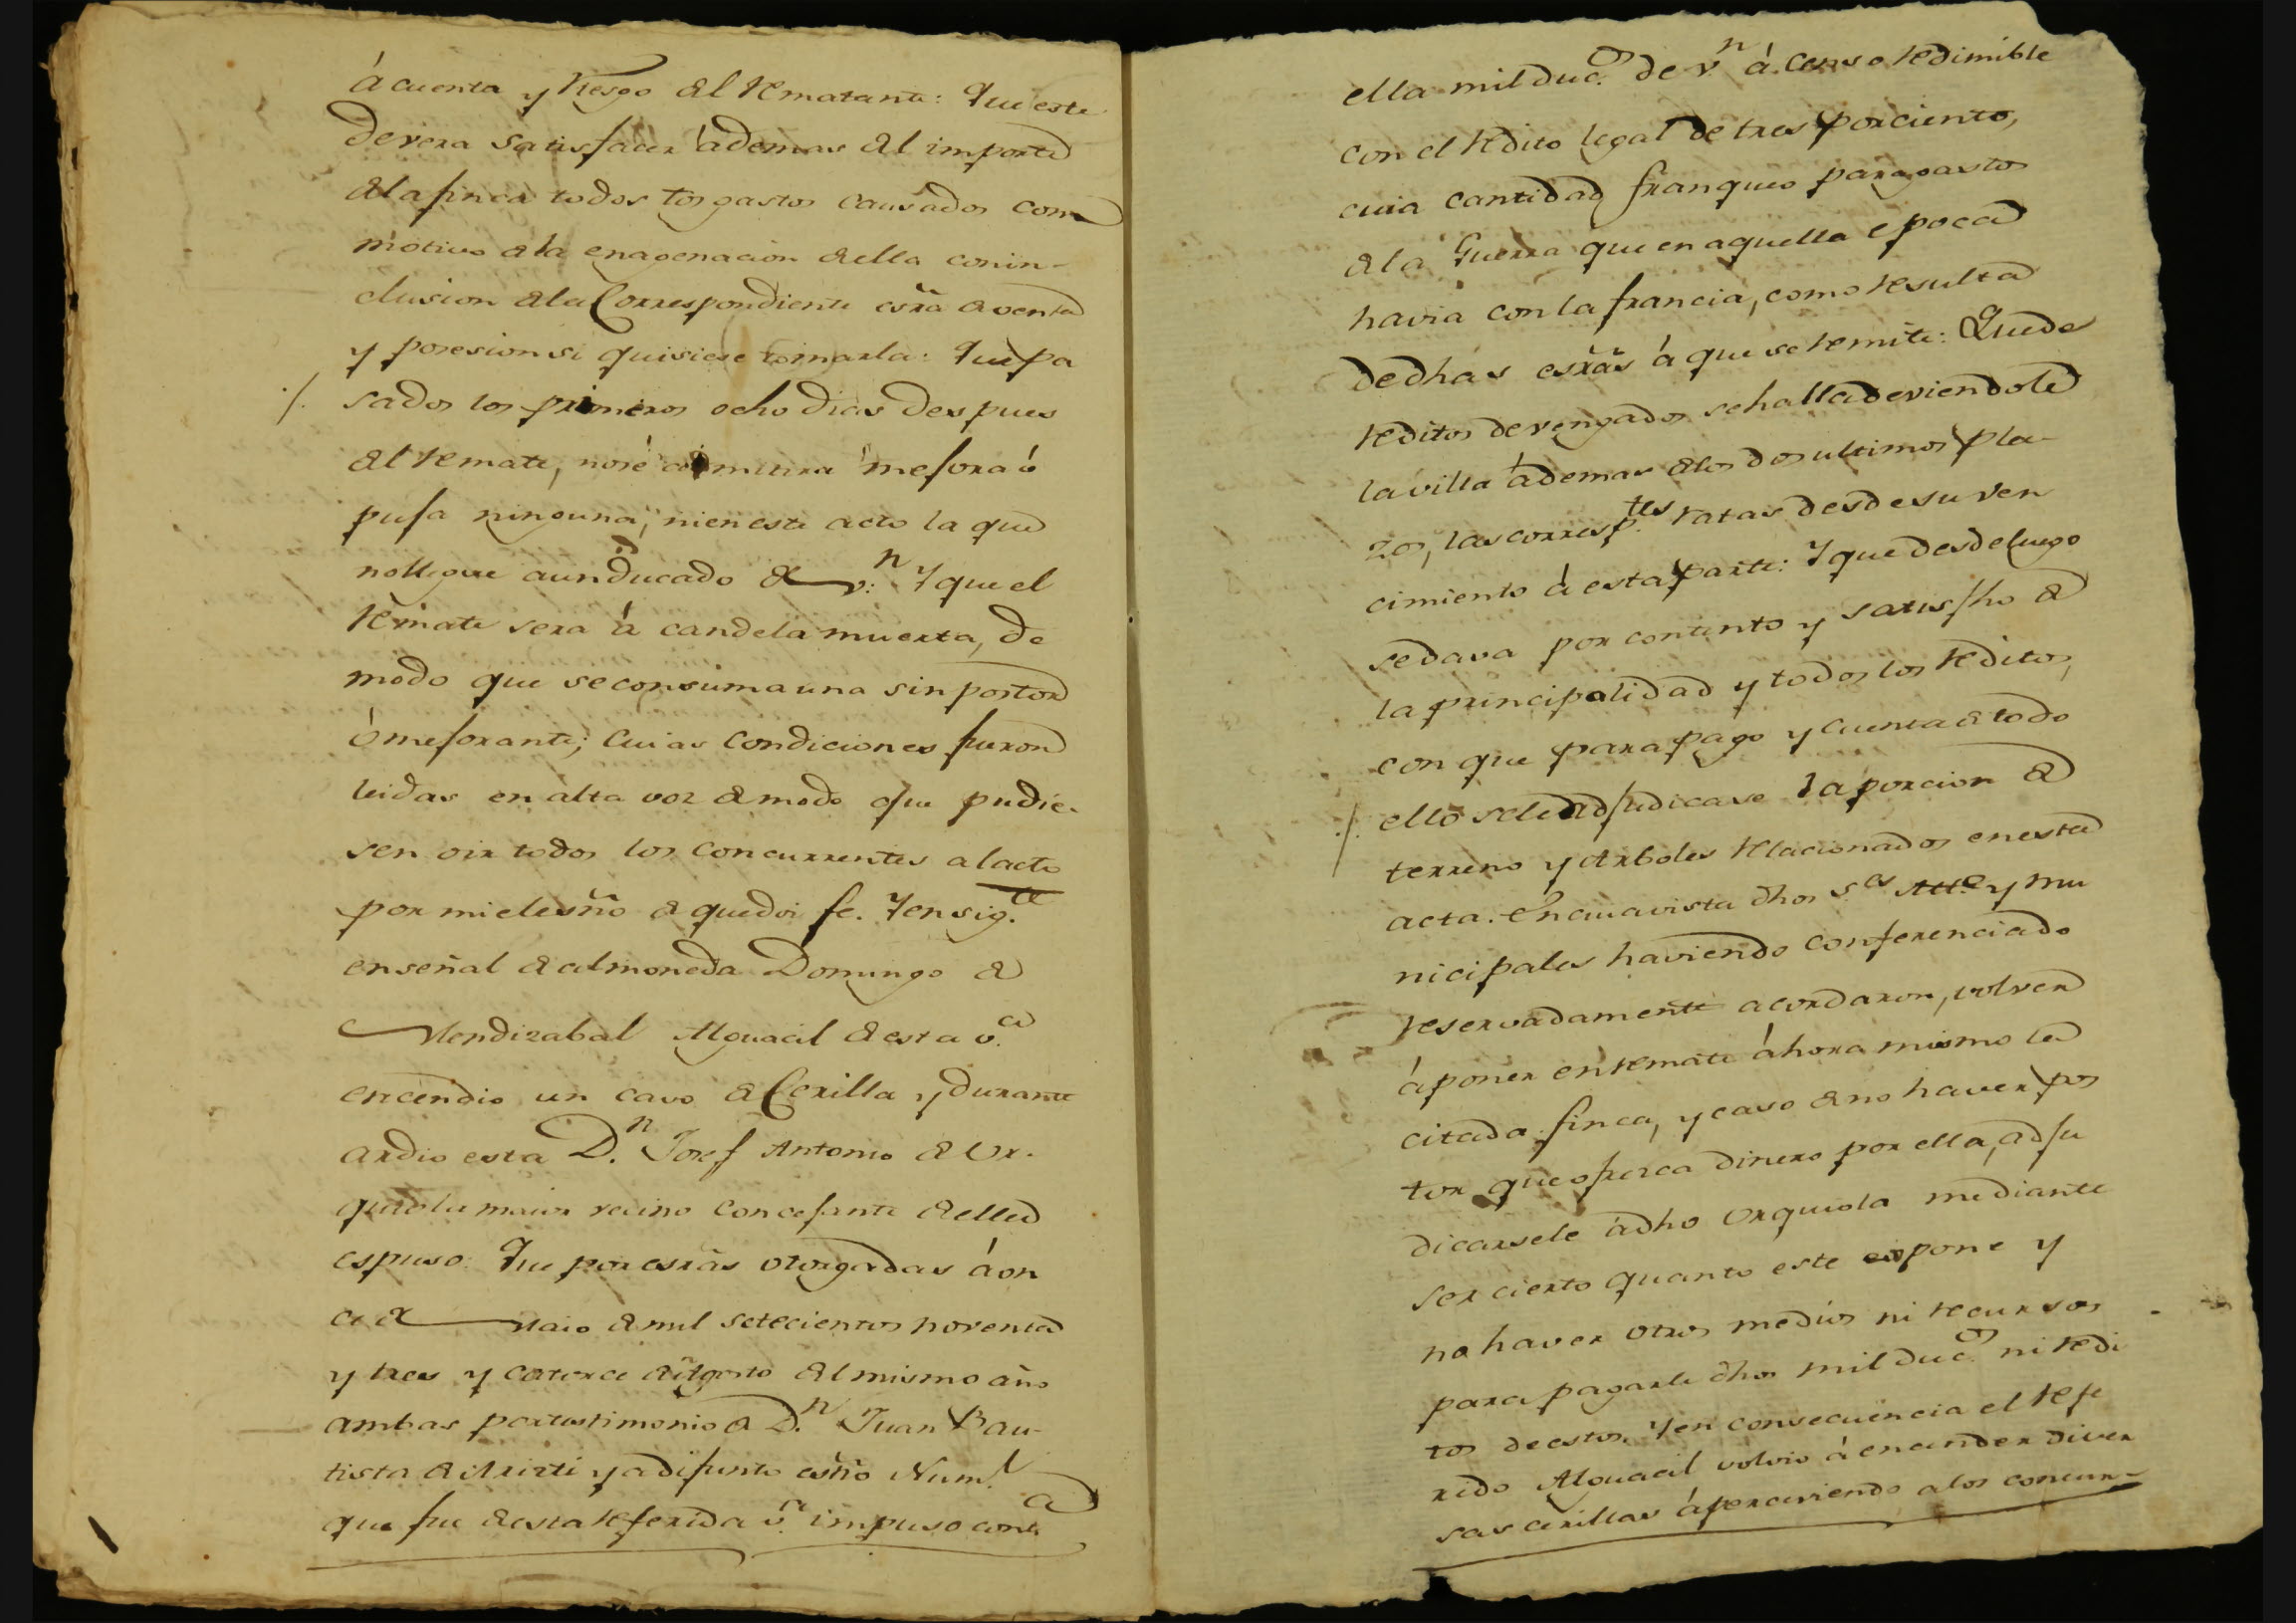 á cuenta y riesgo del rematante: Que este
devera satisfacer ádemas del importe
de la finca todos los gastos causados con
motivo de la enagenacion de ella con in-
clusion de la Correspondiente esrã de venta
y posesion si quisiere tomarla: Que pa
sados los primeros ocho dias despues
del remate, no se admitira mejora ó
puja ninguna, ni en este acto la que
no llegue a un Ducado de v.n Y que el
remate sera á candela muerta, de
modo que se consuma una sin postor
ó mejorante; cuias condiciones fueron
leidas en alta voz de modo que pudie-
sen oir todos los concurrentes al acto
por mi el esño de que doi fe. Y en sig.te
en señal de almoneda Domingo de
Mendizabal Alguacil de esta v.a
encendio un cavo de Cerilla y durante
ardio esta D.n Josef Antonio de Ur-
quiola maior vecino concejante de ella
espuso: Que por esrãs otorgadas á on
ce de Maio de mil setecientos noventa
y tres y catorce de Agosto del mismo año
ambas por testimonio de D.n Juan Bau-
tista de Arizti ya difunto esño Num.l
que fue de esta referida v.a impuso cont.a
ella mil duc.s de v.n á censo redimible
con el redito legal de tres por ciento,
cuia cantidad franqueo para gastos
de la Guerra que en aquella epoca
havia con la francia, como resulta
de dhas esrãs á que se remite: Que de
reditos devengados se halla deviendole
la villa ádemas de los dos ultimos pla-
zos, las corresp.tes ratas desde su ven
cimiento á esta parte: Y que desde luego
se dava por contento y satisfho de
la principalidad y todos los reditos,
con que para pago y cuenta de todo
ello se le adjudicase la porcion de
terreno y Arboles relacionados en esta
acta. En cuia vista dhos S.es Alc.e y mu
nicipales haviendo conferenciado
reservadamente acordaron, volver
á poner en remate áhora mismo la
citada finca, y caso de no haver pos
tor que ofrezca dinero por ella, adju
dicarsele á dho Urquiola mediante
ser cierto quanto este expone y
no haver otros medios ni recursos
para pagarle dhos mil duc.s ni redi
tos de estos. Y en consecuencia el refe
rido Alguacil volvio á encender diver
sas cerillas áperciviendo a los concur-